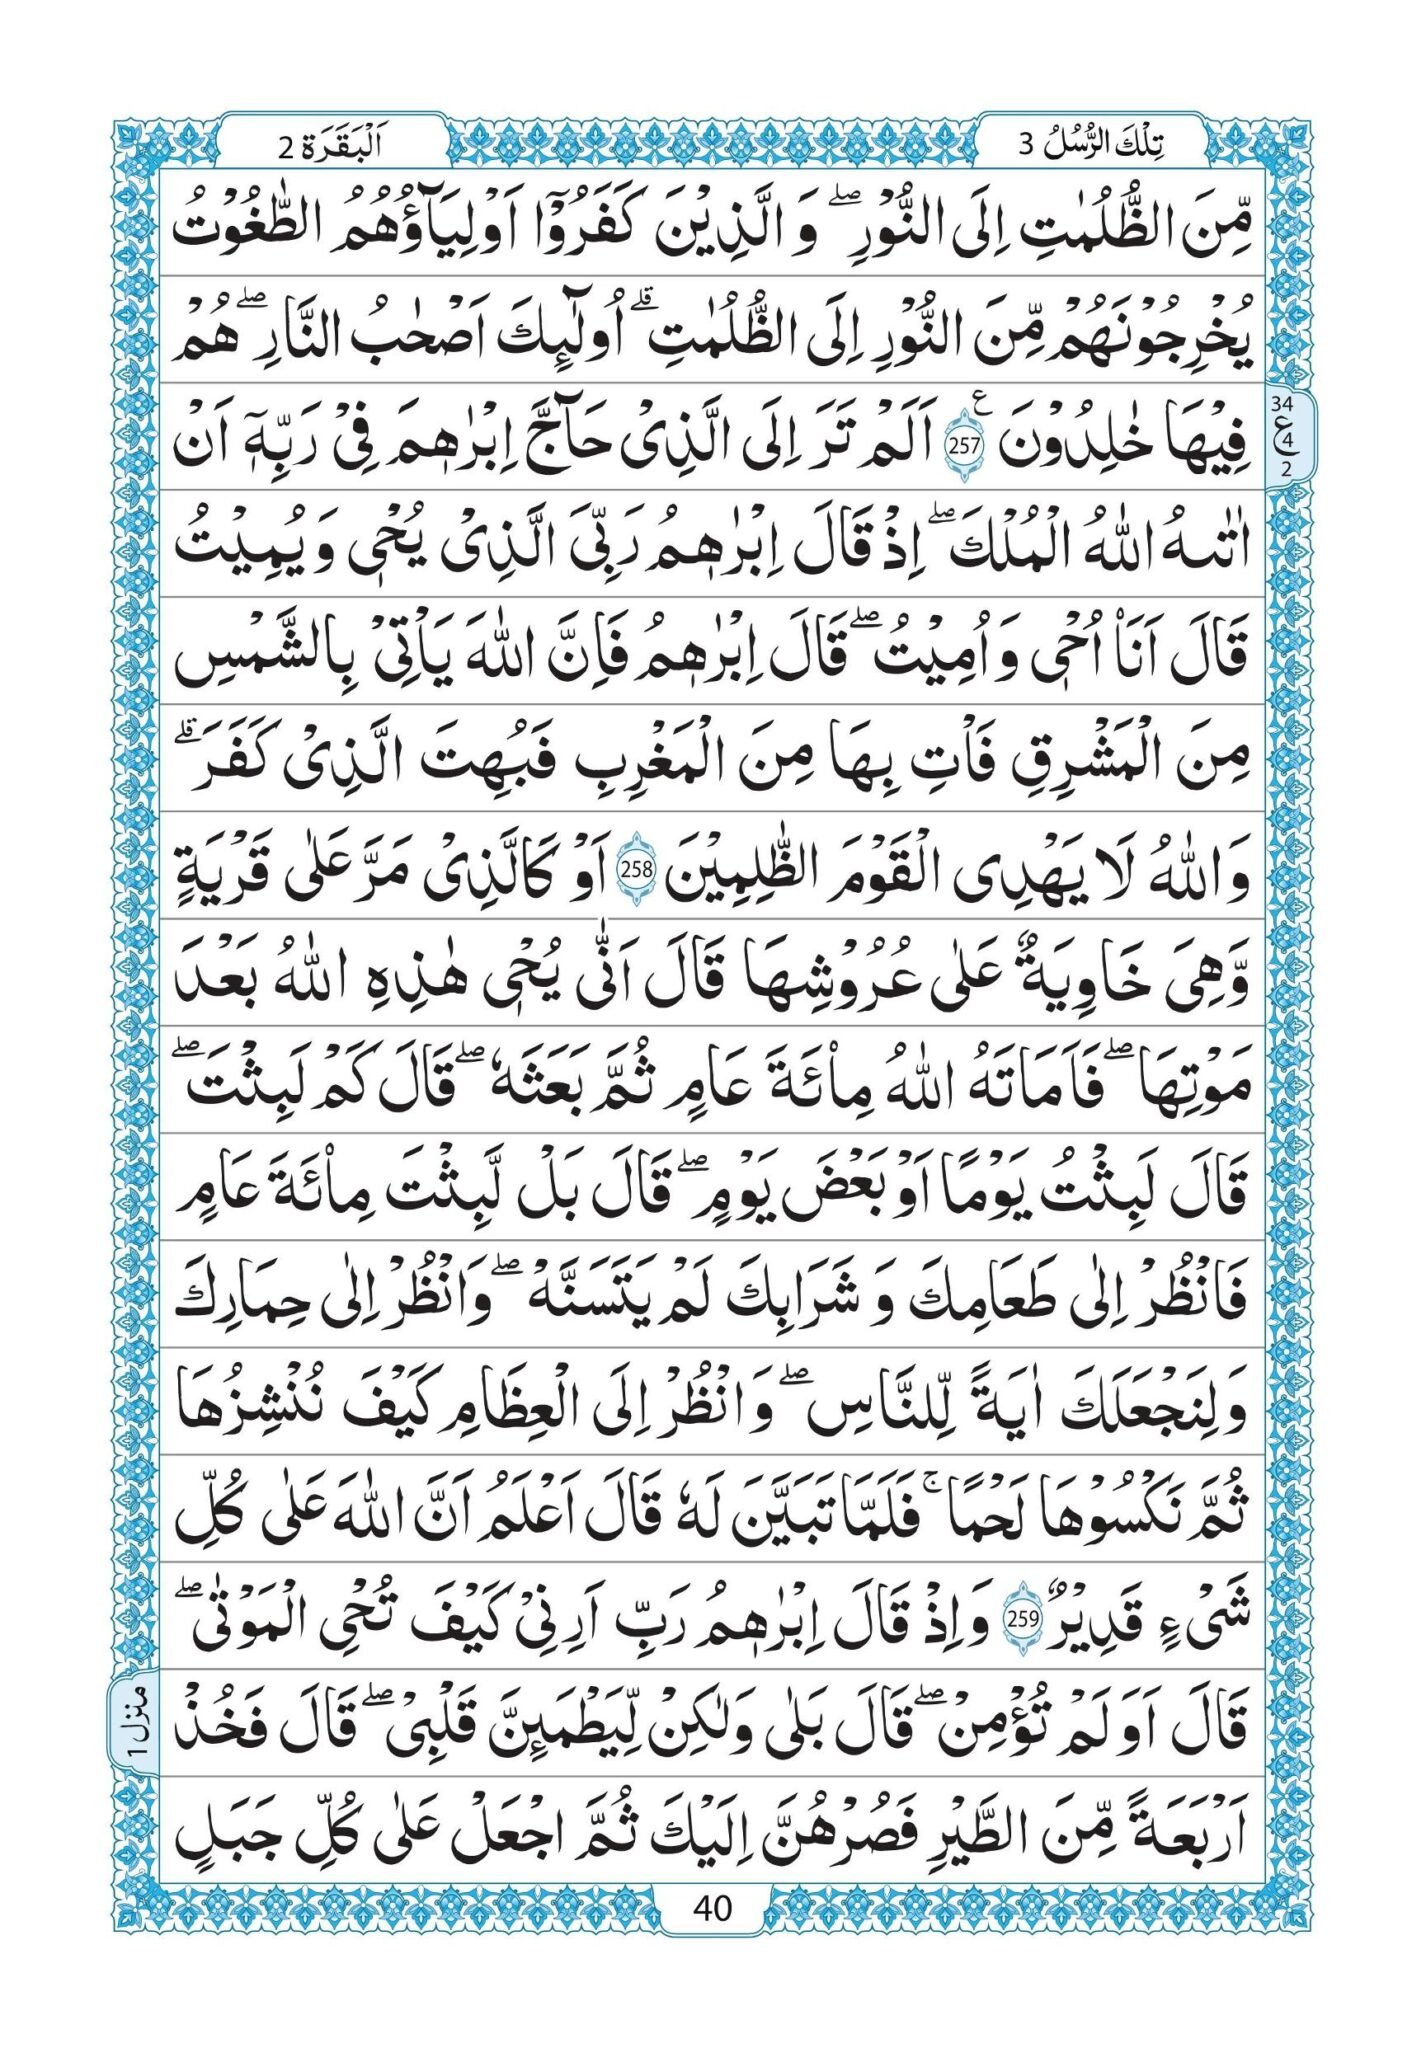 تِلْكَ الرُّسُلُ 3
اَلْبَقَرَة 2
مِّنَ الظُّلُمٰتِ اِلَى النُّوْرِ ۖ وَ الَّذِيْنَ كَفَرُوْۤا اَوْلِيَآؤُهُمُ الطّٰغُوْتُ
يُخْرِجُوْنَهُمْ مِّنَ النُّوْرِ اِلَى الظُّلُمٰتِ ۗ اُولٰٓئِكَ اَصْحٰبُ النَّارِ ۖ هُمْ
فِيْهَا خٰلِدُوْنَ ع 257 اَلَمْ تَرَ اِلَى الَّذِىْ حَآجَّ اِبْرٰهٖمَ فِىْ رَبِّهٖۤ اَنْ
34
ع 4
2
اٰتٰىهُ اللّٰهُ الْمُلْكَ ۖ اِذْ قَالَ اِبْرٰهٖمُ رَبِّىَ الَّذِىْ يُحْىٖ وَ يُمِيْتُ
قَالَ اَنَا۠ اُحْىٖ وَ اُمِيْتُ ۖ قَالَ اِبْرٰهٖمُ فَاِنَّ اللّٰهَ يَاْتِىْ بِالشَّمْسِ
مِنَ الْمَشْرِقِ فَاْتِ بِهَا مِنَ الْمَغْرِبِ فَبُهِتَ الَّذِىْ كَفَرَ ۗ
وَ اللّٰهُ لَا يَهْدِى الْقَوْمَ الظّٰلِمِيْنَ 258 اَوْ كَالَّذِىْ مَرَّ عَلٰى قَرْيَةٍ
وَّ هِىَ خَاوِيَةٌ عَلٰى عُرُوْشِهَا قَالَ اَنّٰى يُحْىٖ هٰذِهِ اللّٰهُ بَعْدَ
مَوْتِهَا ۖ فَاَمَاتَهُ اللّٰهُ مِا۟ئَةَ عَامٍ ثُمَّ بَعَثَهٗ ۖ قَالَ كَمْ لَبِثْتَ ۖ
قَالَ لَبِثْتُ يَوْمًا اَوْ بَعْضَ يَوْمٍ ۖ قَالَ بَلْ لَّبِثْتَ مِا۟ئَةَ عَامٍ
فَانْظُرْ اِلٰى طَعَامِكَ وَ شَرَابِكَ لَمْ يَتَسَنَّهْ ۖ وَ انْظُرْ اِلٰى حِمَارِكَ
وَ لِنَجْعَلَكَ اٰيَةً لِّلنَّاسِ ۖ وَ انْظُرْ اِلَى الْعِظَامِ كَيْفَ نُنْشِزُهَا
ثُمَّ نَكْسُوْهَا لَحْمًا ۚ فَلَمَّا تَبَيَّنَ لَهٗ قَالَ اَعْلَمُ اَنَّ اللّٰهَ عَلٰى كُلِّ
شَىْءٍ قَدِيْرٌ 259 وَ اِذْ قَالَ اِبْرٰهٖمُ رَبِّ اَرِنِىْ كَيْفَ تُحْىِ الْمَوْتٰى ۖ
قَالَ اَوَ لَمْ تُؤْمِنْ ۖ قَالَ بَلٰى وَ لٰكِنْ لِّيَطْمَئِنَّ قَلْبِىْ ۖ قَالَ فَخُذْ
منزل 1
اَرْبَعَةً مِّنَ الطَّيْرِ فَصُرْهُنَّ اِلَيْكَ ثُمَّ اجْعَلْ عَلٰى كُلِّ جَبَلٍ
40